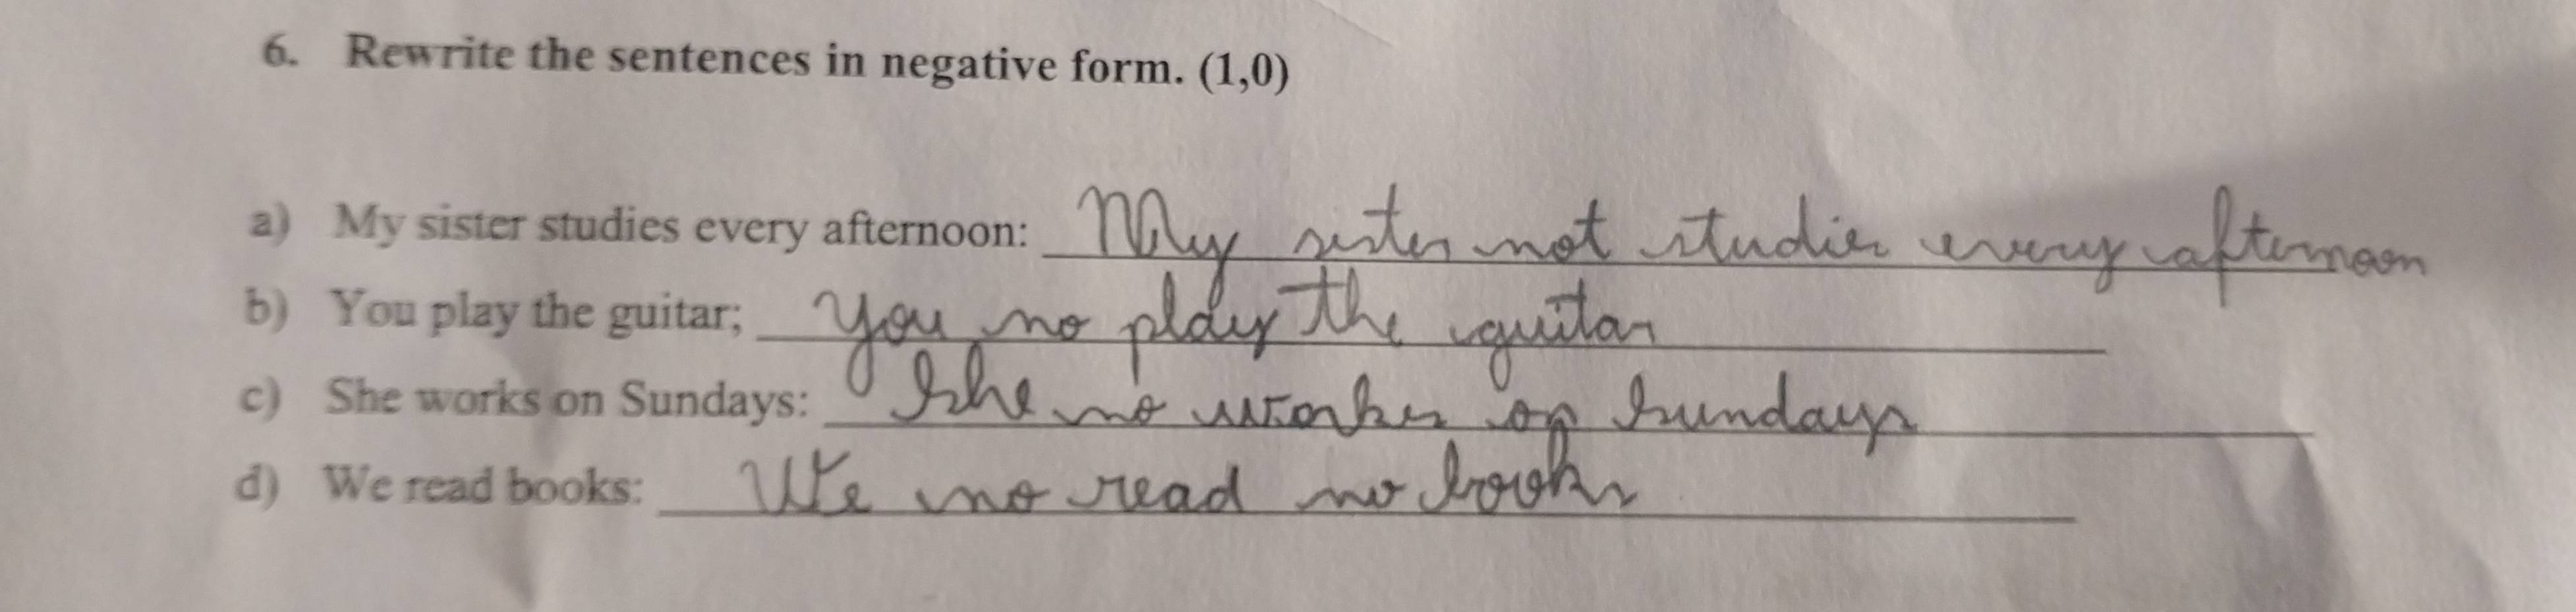 6. Rewrite the sentences in negative form. (1,0)
a) My sister studies every afternoon: My sister not studies every afternoon
b) You play the guitar; You no play the guitar
c) She works on Sundays: She no works on Sundays
d) We read books: We no read no books